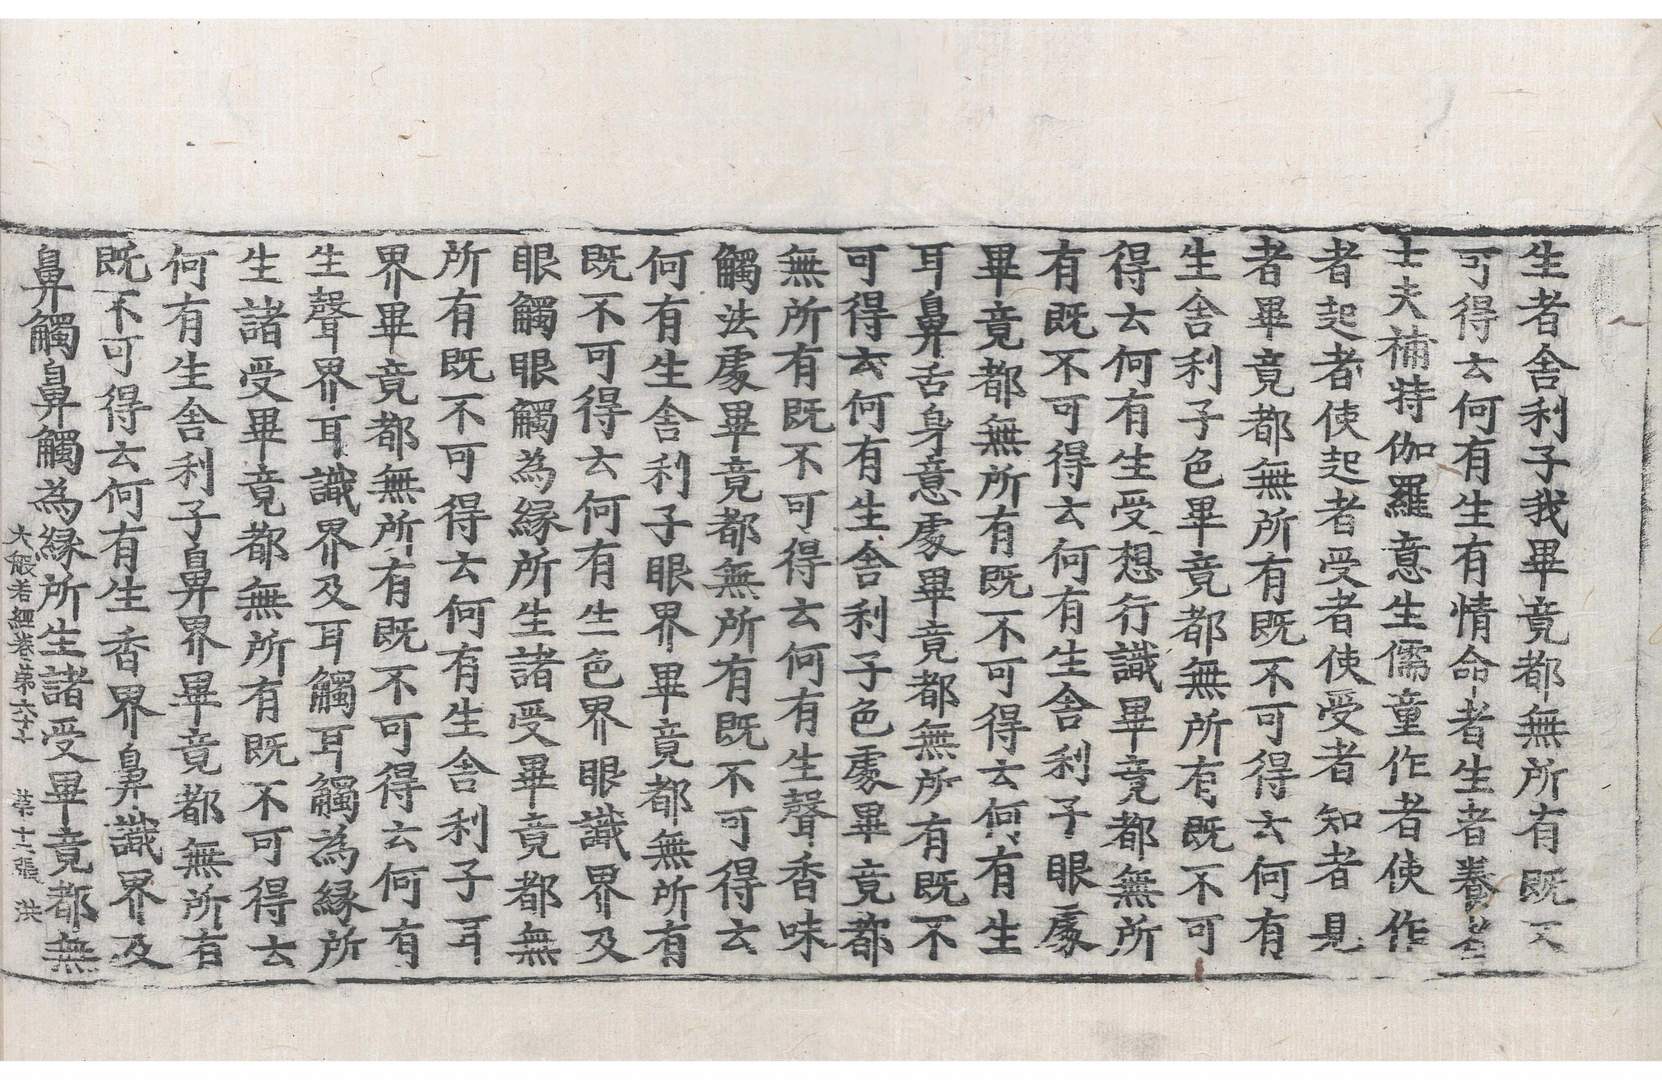 生者舍利子我畢竟都無所有既不
可得云何有生有情命者生者養者
士夫補特伽羅意生儒童作者使作
者起者使起者受者使受者知者見
者畢竟都無所有既不可得云何有
生舍利子色畢竟都無所有既不可
得云何有生受想行識畢竟都無所
有既不可得云何有生舍利子眼處
畢竟都無所有既不可得云何有生
耳鼻舌身意處畢竟都無所有既不
可得云何有生舍利子色處畢竟都
無所有既不可得云何有生聲香味
觸法處畢竟都無所有既不可得云
何有生舍利子眼界畢竟都無所有
既不可得云何有生色界眼識界及
眼觸眼觸為緣所生諸受畢竟都無
所有既不可得云何有生舍利子耳
界畢竟都無所有既不可得云何有
生聲界耳識界及耳觸耳觸為緣所
生諸受畢竟都無所有既不可得云
何有生舍利子鼻界畢竟都無所有
既不可得云何有生香界鼻識界及
鼻觸鼻觸為緣所生諸受畢竟都無
大般若經卷第六十七 第十二張 洪